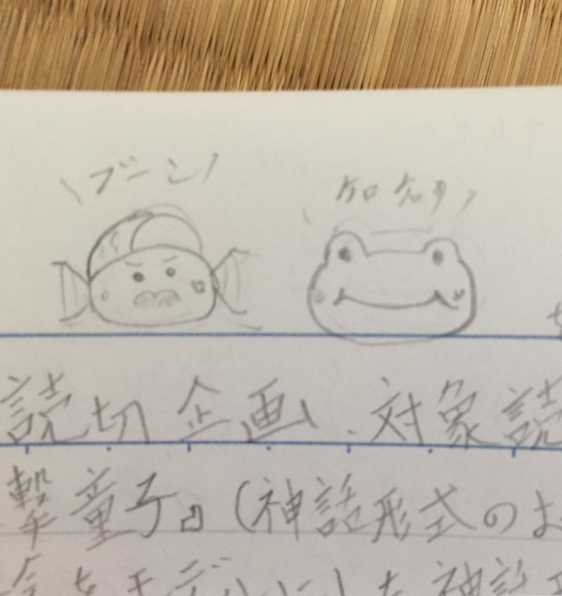 ブーン
ケロケロ
読切企画、対象読
撃童子』(神話形式のお
をモデルにした神話